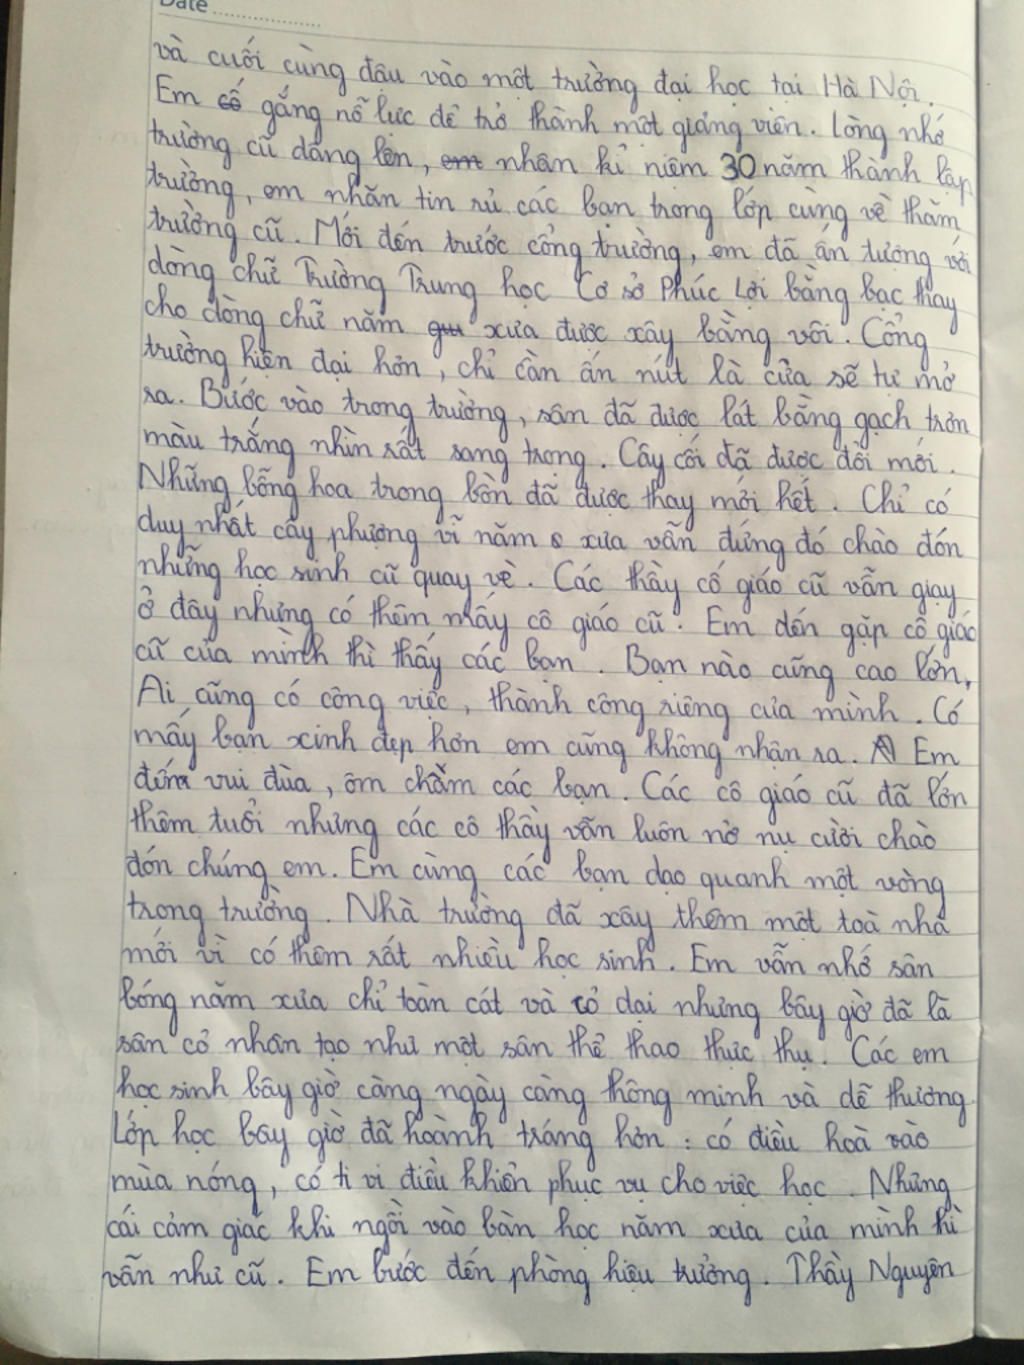 Date
và cuối cùng đậu vào một trường đại học tại Hà Nội.
Em cố gắng nỗ lực để trở thành một giảng viên. Lòng nhớ
trường cũ dâng lên, em nhân kỉ niệm 30 năm thành lập
trường, em nhắn tin rủ các bạn trong lớp cùng về thăm
trường cũ. Mới đến trước cổng trường, em đã ấn tượng với
dòng chữ Trường Trung học Cơ sở Phúc Lợi bằng bạc thay
cho dòng chữ năm xưa được xây bằng vôi. Cổng
trường hiện đại hơn, chỉ cần ấn nút là cửa sẽ tự mở
ra. Bước vào trong trường, sân đã được lát bằng gạch trơn
màu trắng nhìn rất sang trọng. Cây cối đã được đổi mới.
Những bông hoa trong bồn đã được thay mới hết. Chỉ có
duy nhất cây phượng vĩ năm xưa vẫn đứng đó chào đón
những học sinh cũ quay về. Các thầy cố giáo cũ vẫn giạy
ở đây nhưng có thêm mấy cô giáo cũ. Em đến gặp cô giáo
cũ của mình thì thấy các bạn. Bạn nào cũng cao lớn,
Ai cũng có công việc, thành công riêng của mình. Có
mấy bạn xinh đẹp hơn em cũng không nhận ra. Em
đến vui đùa, ôm chầm các bạn. Các cô giáo cũ đã lớn
thêm tuổi nhưng các cô thầy vẫn luôn nở nụ cười chào
đón chúng em. Em cùng các bạn dạo quanh một vòng
trong trường. Nhà trường đã xây thêm một toà nhà
mới vì có thêm rất nhiều học sinh. Em vẫn nhớ sân
bóng năm xưa chỉ toàn cát và cỏ dại nhưng bây giờ đã là
sân cỏ nhân tạo như một sân thể thao thực thụ. Các em
học sinh bây giờ càng ngày càng thông minh và dễ thương.
Lớp học bây giờ đã hoành tráng hơn: có điều hoà vào
mùa nóng, có ti vi điều khiển phục vụ cho việc học. Những
cái cảm giác khi ngồi vào bàn học năm xưa của mình thì
vẫn như cũ. Em bước đến phòng hiệu trưởng. Thầy Nguyên